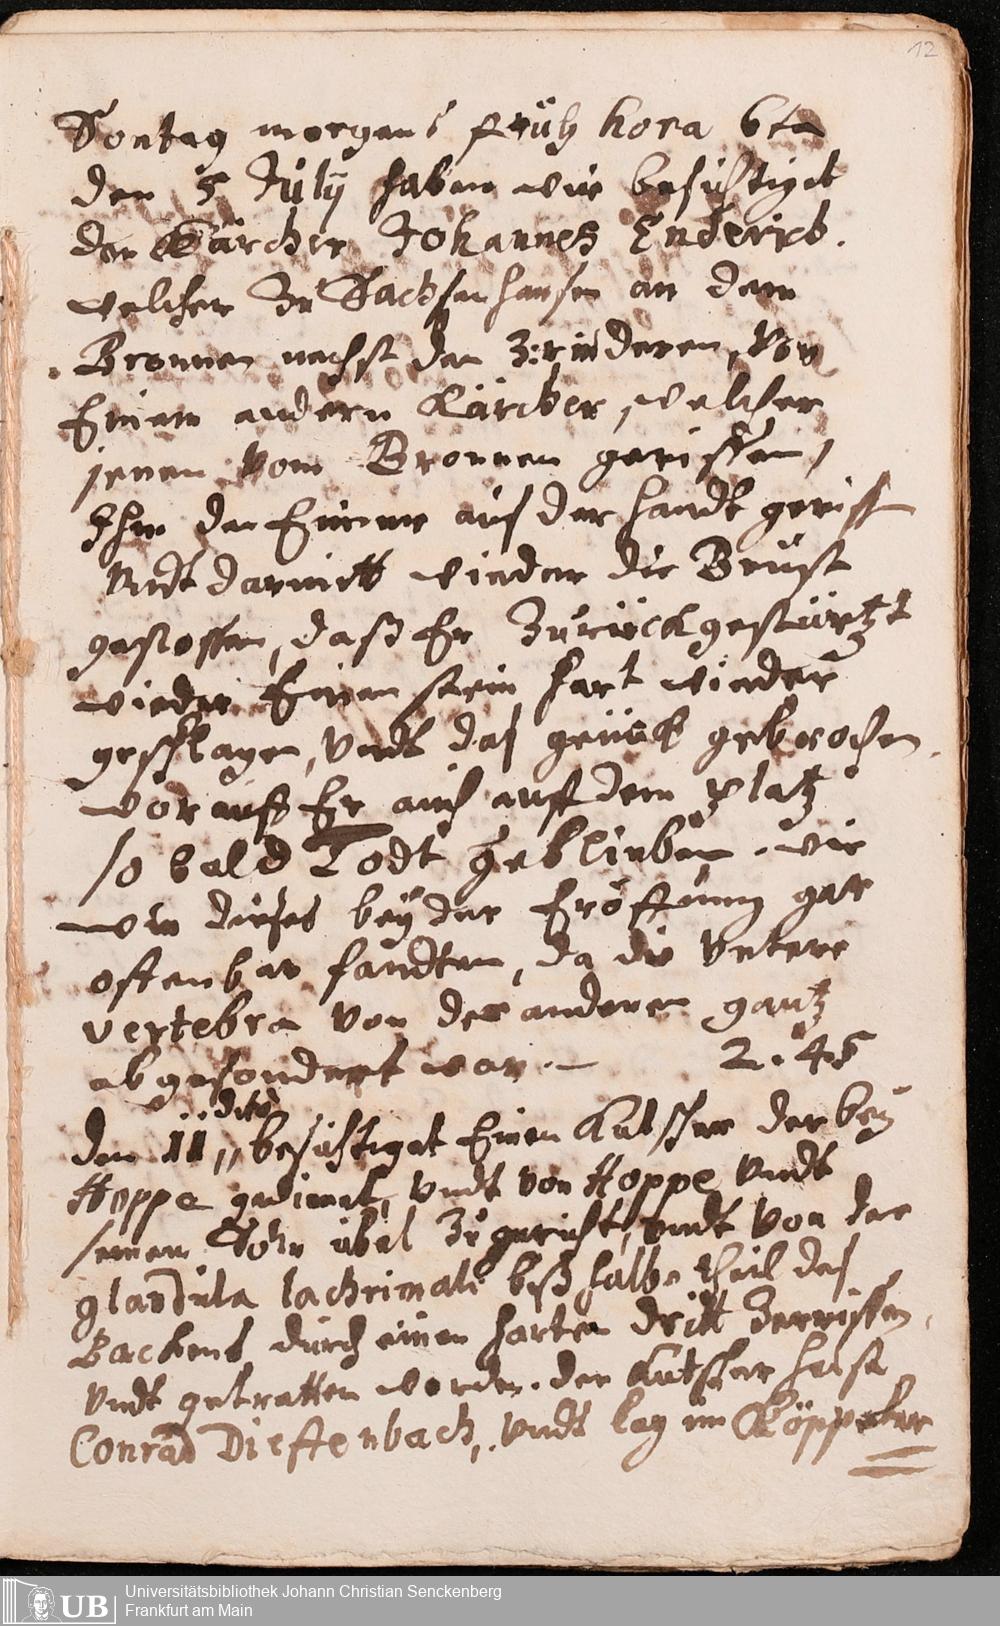 12
Sontag morgens früh hora 6ta
den 5 Julÿ haben wir besichtiget
den Kärcher Johannes Enderich.
welcher zu Sachsenhausen an dem
Bronnen nechst den 3: rinderen, von
Einem andern Kärcher, welcher
jenen vom Bronnen gerissen,
Ihm den Eimmer auß der handt geriss
undt darmitt wieder die Brust
gestossen, daß Er zurückgestürtzt
wieder Einen stein hart wieder
geschlagen, undt das genück gebrochen.
worauß Er auch auf dem platz
so bald Todt geblieben. wie
wir dieses beÿ der Eröffnung gar
offenbar fandten, da die untere
vertebra von der anderen gantz
abgesondert war. — 2. 45
den 11 dito besichtiget Einen Kutscher der beÿ
Hoppe gedienet, undt von Hoppe undt
seinem Sohn übel zugericht, undt von der
glandula lachrimali biß halbe theil des
Backens durch einen harten dritt zerrissen,
undt getretten worden. der Kutscher heist
Conrad Dieffenbach, undt lag im
Universitätsbibliothek Johann Christian Senckenberg
Frankfurt am Main
UB